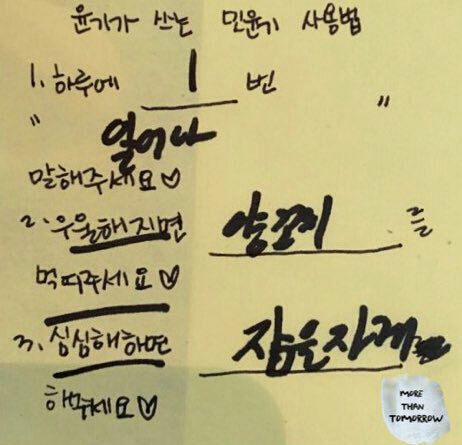 윤기가 쓰는 민윤기 사용법
1. 하루에 1 번
" 일어나 "
말해주세요♡
2. 우울해지면 양꼬치 를
먹여주세요♡
3. 심심해하면 잠을자게
해주세요♡
MORE
THAN
TOMORROW